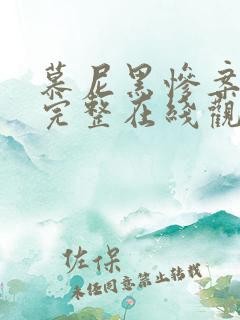 慕尼黑惨案
完整在线觀
佐保
未经同意禁止转载